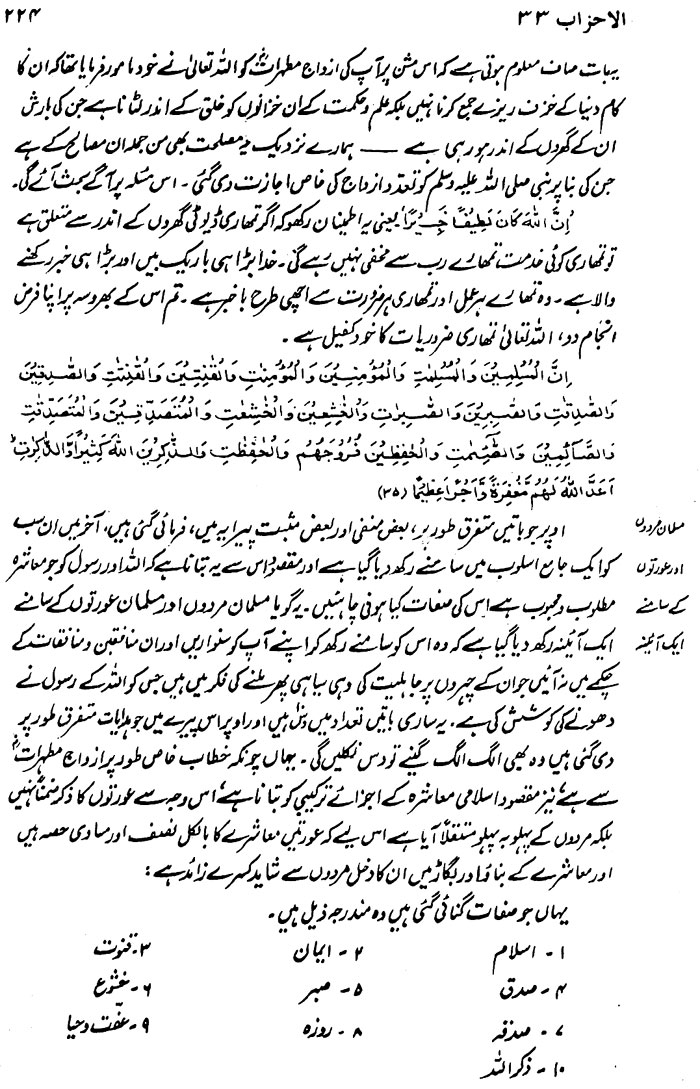 الاحزاب ۳۳
۲۲۴
یہ بات صاف معلوم ہوتی ہے کہ اس مشن پر آپ کی ازواج مطہراتؓ کو اللہ تعالیٰ نے خود مامور فرمایا تھا کہ ان کا
کام دنیا کے خزف ریزے جمع کرنا نہیں بلکہ علم و حکمت کے ان خزانوں کو خلق کے اندر لٹانا ہے جن کی بارش
ان کے گھروں کے اندر ہو رہی ہے —— ہمارے نزدیک یہ مصلحت بھی من جملہ ان مصالح کے ہے
جن کی بنا پر نبی صلی اللہ علیہ وسلم کو تعدد ازواج کی خاص اجازت دی گئی۔ اس مسئلہ پر آگے بحث آئے گی۔
اِنَّ اللّٰهَ كَانَ لَطِيْفًا خَبِيْرًا یعنی یہ اطمینان رکھو کہ اگر تمھاری ڈیوٹی گھروں کے اندر سے متعلق ہے
تو تمھاری کوئی خدمت تمھارے رب سے مخفی نہیں رہے گی۔ خدا بڑا ہی باریک بیں اور بڑا ہی خبر رکھنے
والا ہے۔ وہ تمھارے ہر عمل اور تمھاری ہر ضرورت سے اچھی طرح با خبر ہے۔ تم اس کے بھروسہ پر اپنا فرض
انجام دو، اللہ تعالیٰ تمھاری ضروریات کا خود کفیل ہے۔
اِنَّ الْمُسْلِمِيْنَ وَالْمُسْلِمٰتِ وَالْمُؤْمِنِيْنَ وَالْمُؤْمِنٰتِ وَالْقٰنِتِيْنَ وَالْقٰنِتٰتِ وَالصّٰدِقِيْنَ
وَالصّٰدِقٰتِ وَالصّٰبِرِيْنَ وَالصّٰبِرٰتِ وَالْخٰشِعِيْنَ وَالْخٰشِعٰتِ وَالْمُتَصَدِّقِيْنَ وَالْمُتَصَدِّقٰتِ
وَالصَّآئِمِيْنَ وَالصّٰٓئِمٰتِ وَالْحٰفِظِيْنَ فُرُوْجَهُمْ وَالْحٰفِظٰتِ وَالذّٰكِرِيْنَ اللّٰهَ كَثِيْرًا وَّالذّٰكِرٰتِ
اَعَدَّ اللّٰهُ لَهُمْ مَّغْفِرَةً وَّاَجْرًا عَظِيْمًا (۳۵)
مسلمان مردوں
اور عورتوں
کے سامنے
ایک آئینہ
اوپر جو باتیں متفرق طور پر، بعض منفی اور بعض مثبت پیرایہ میں، فرمائی گئی ہیں، آخر میں ان سب
کو ایک جامع اسلوب میں سامنے رکھ دیا گیا ہے اور مقصود اس سے یہ بتانا ہے کہ اللہ اور رسول کو جو معاشرہ
مطلوب و محبوب ہے اس کی صفات کیا ہونی چاہئیں۔ یہ گویا مسلمان مردوں اور مسلمان عورتوں کے سامنے
ایک آئینہ رکھ دیا گیا ہے کہ وہ اس کو سامنے رکھ کر اپنے آپ کو سنواریں اور ان منافقین و منافقات کے
چکمے میں نہ آئیں جو ان کے چہروں پر جاہلیت کی وہی سیاہی پھر ملنے کی فکر میں ہیں جس کو اللہ کے رسول نے
دھونے کی کوشش کی ہے۔ یہ ساری باتیں تعداد میں دس ہیں اور اوپر اس پیرے میں جو ہدایات متفرق طور پر
دی گئی ہیں وہ بھی الگ الگ گنیے تو دس نکلیں گی۔ یہاں چونکہ خطاب خاص طور پر ازواج مطہراتؓ
سے ہے، نیز مقصود اسلامی معاشرہ کے اجزائے ترکیبی کو بتانا ہے، اس وجہ سے عورتوں کا ذکر ضمناً نہیں
بلکہ مردوں کے پہلو بہ پہلو مستقلاً آیا ہے اس لیے کہ عورتیں معاشرے کا بالکل نصف اور مساوی حصہ ہیں
اور معاشرے کے بناؤ اور بگاڑ میں ان کا دخل مردوں سے شاید کسرے زائد ہے:
یہاں جو صفات گنائی گئی ہیں وہ مندرجہ ذیل ہیں۔
۱- اسلام ۲- ایمان ۳- قنوت
۴- صدق ۵- صبر ۶- خشوع
۷- صدقہ ۸- روزہ ۹- عفّت و حیا
۱۰- ذکر اللہ